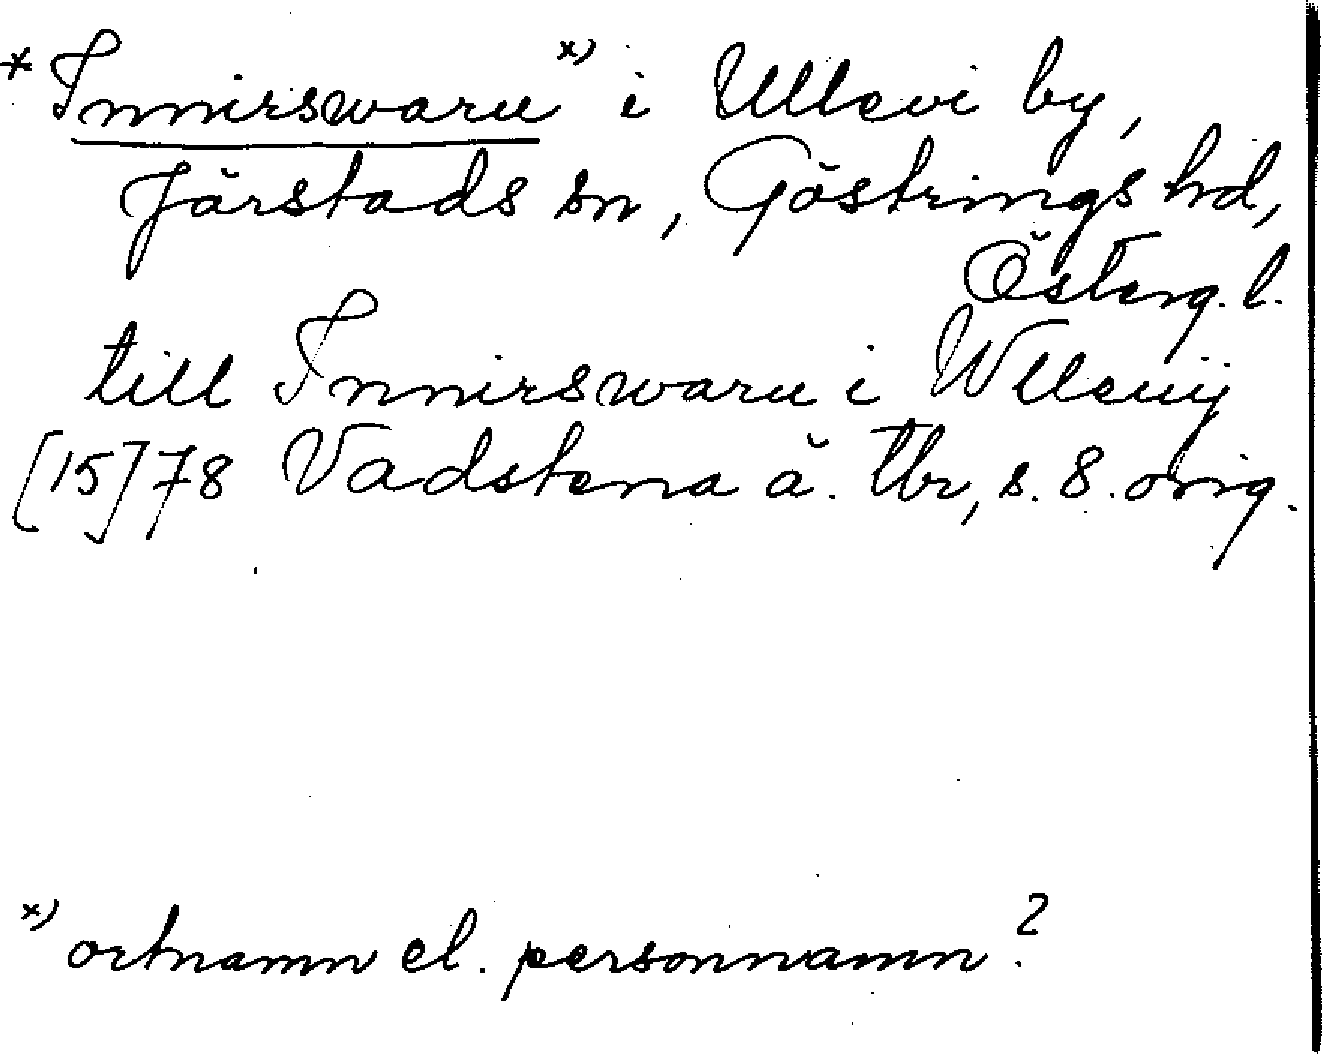 * Innirswaru x) i Ullevi by,
Järstads sn, Göstrings hd,
Österg. l.
till Innirswaru i Wlleuij
[15]78 Vadstena ä. tbr, s. 8. orig.
x) ortnamn el. personnamn?